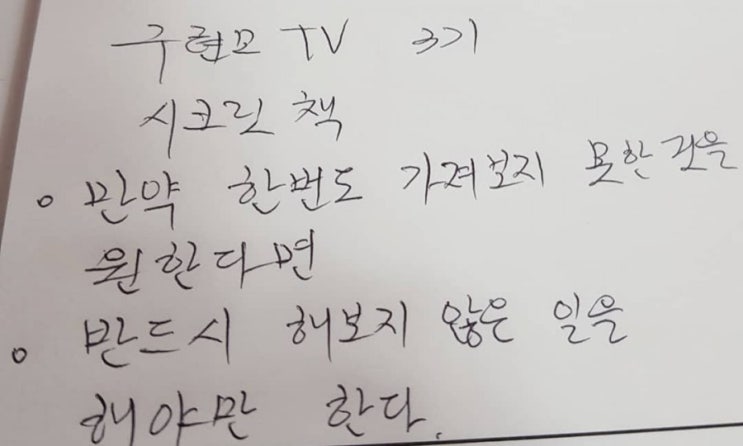 구현모 TV 3기
시크릿 책
• 만약 한번도 가져보지 못한 것을
원한다면
• 반드시 해보지 않은 일을
해야만 한다.